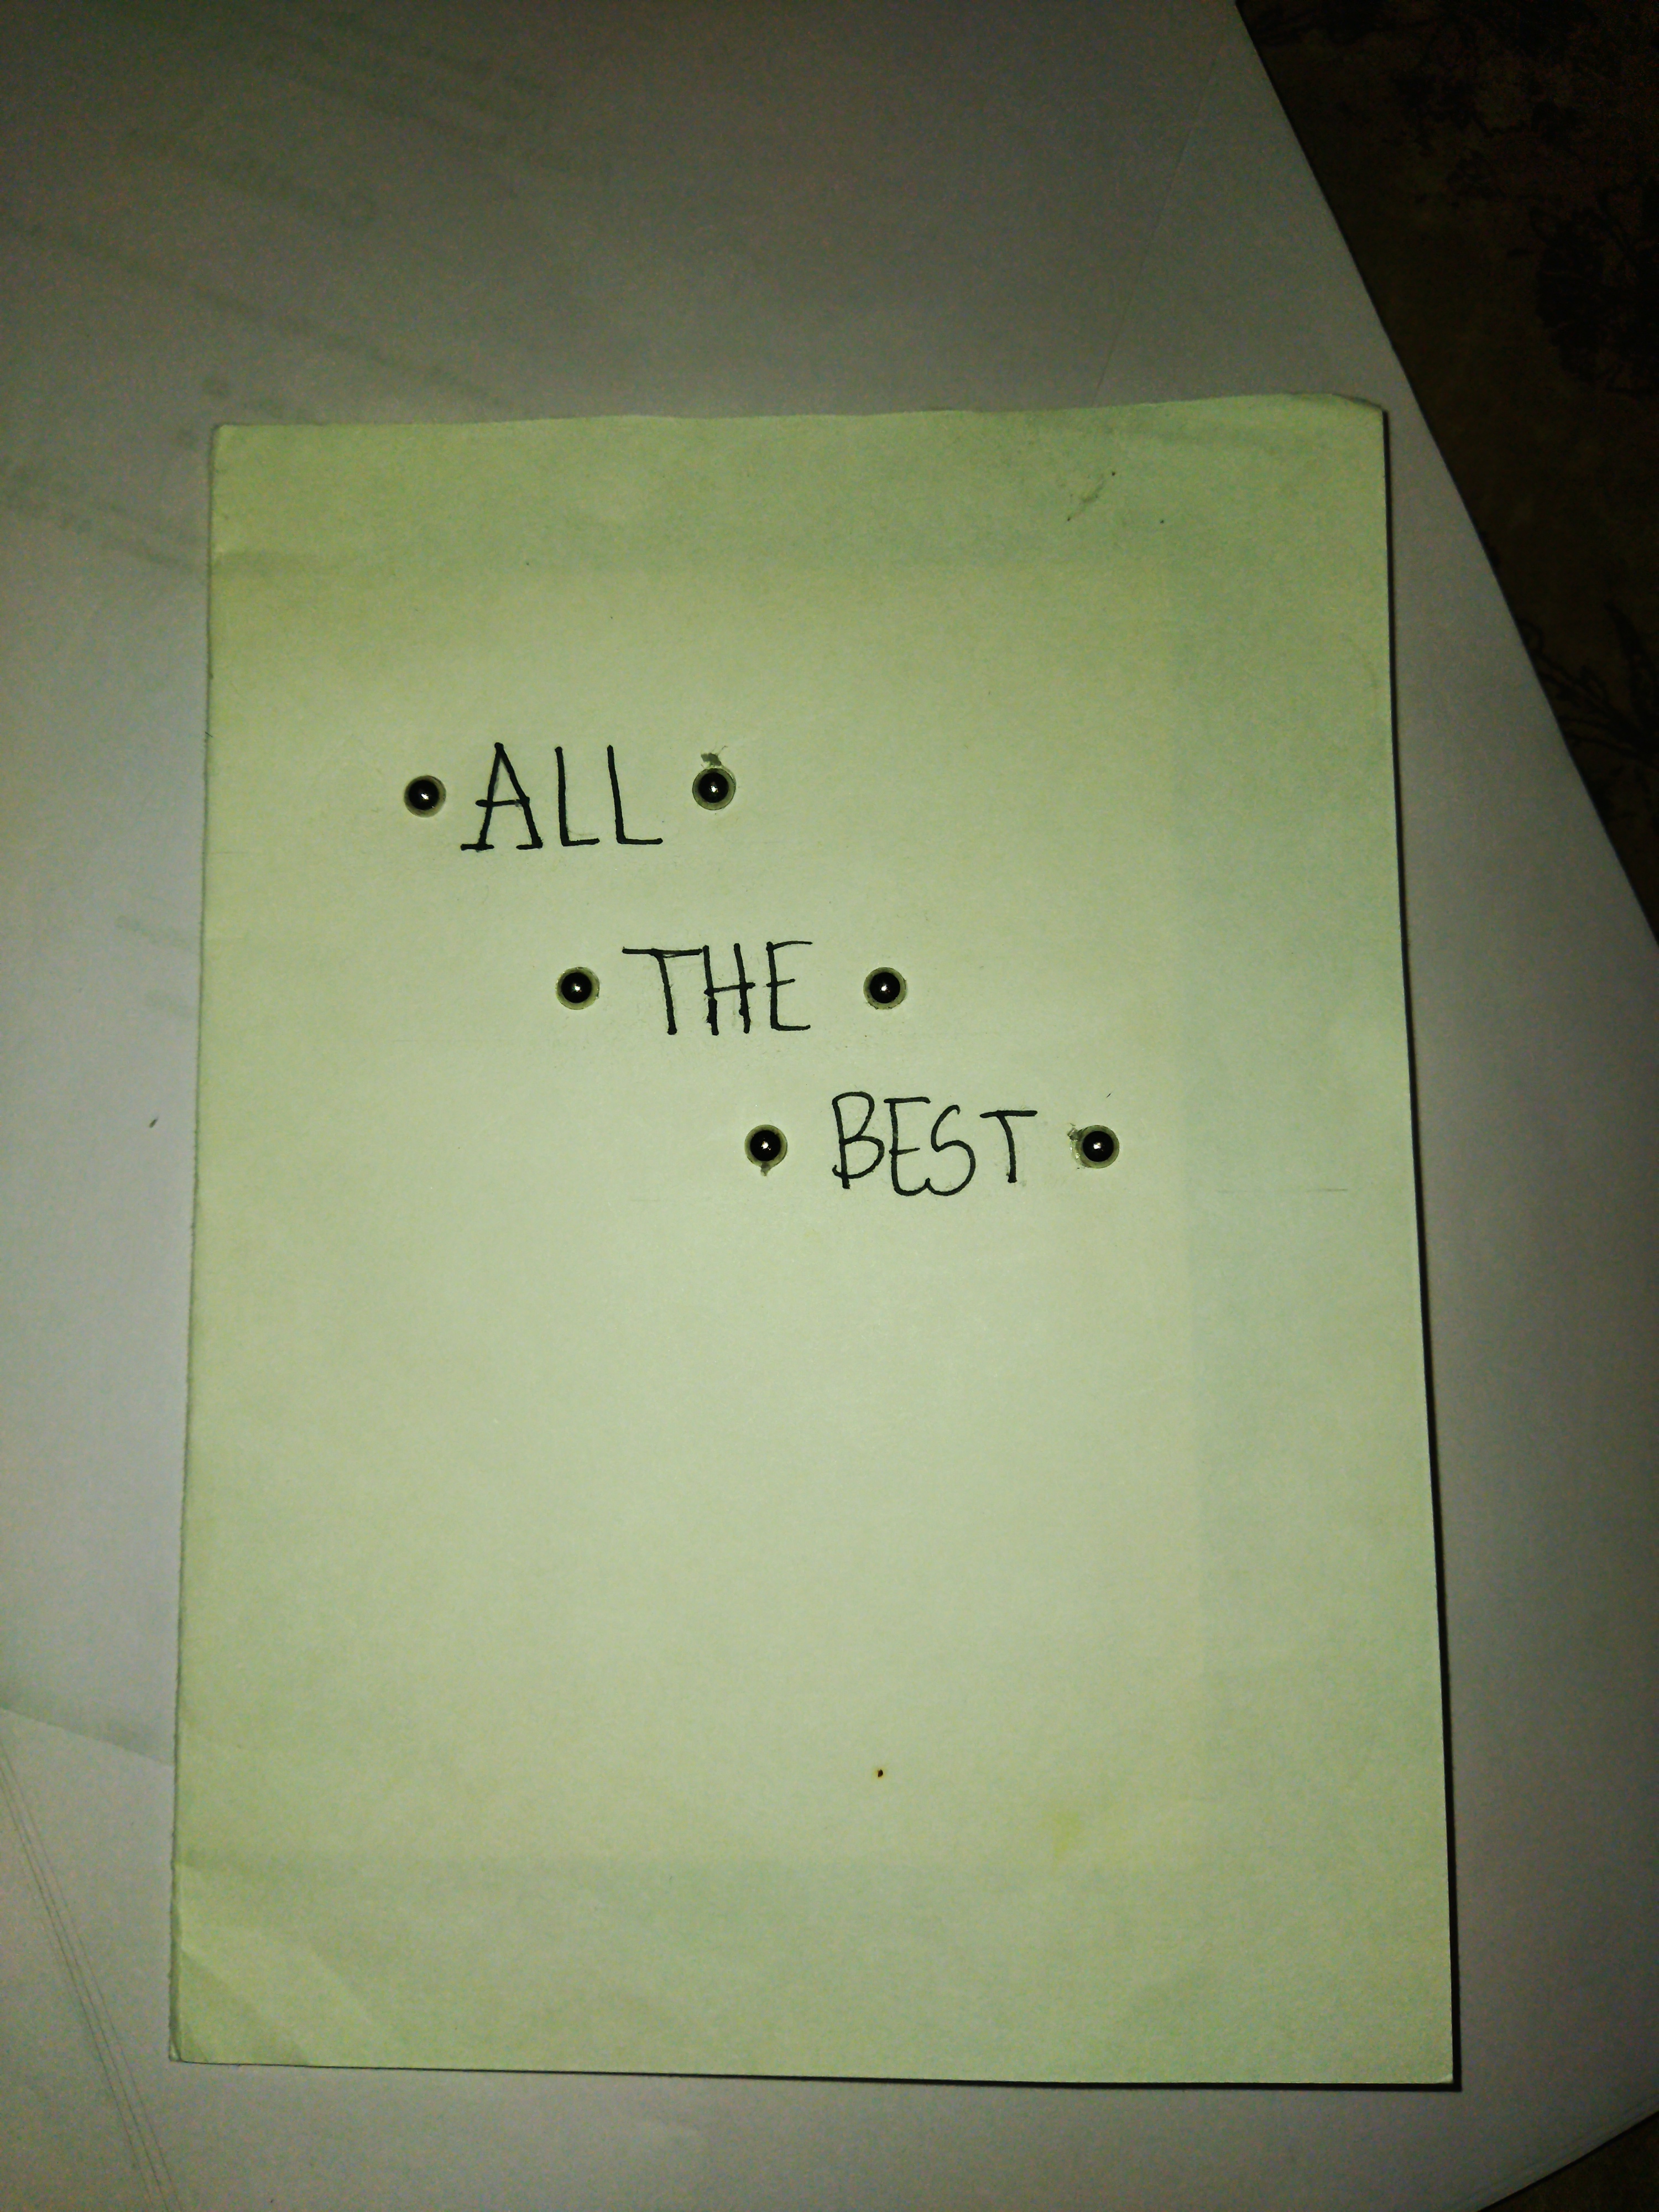 ALL
THE
BEST